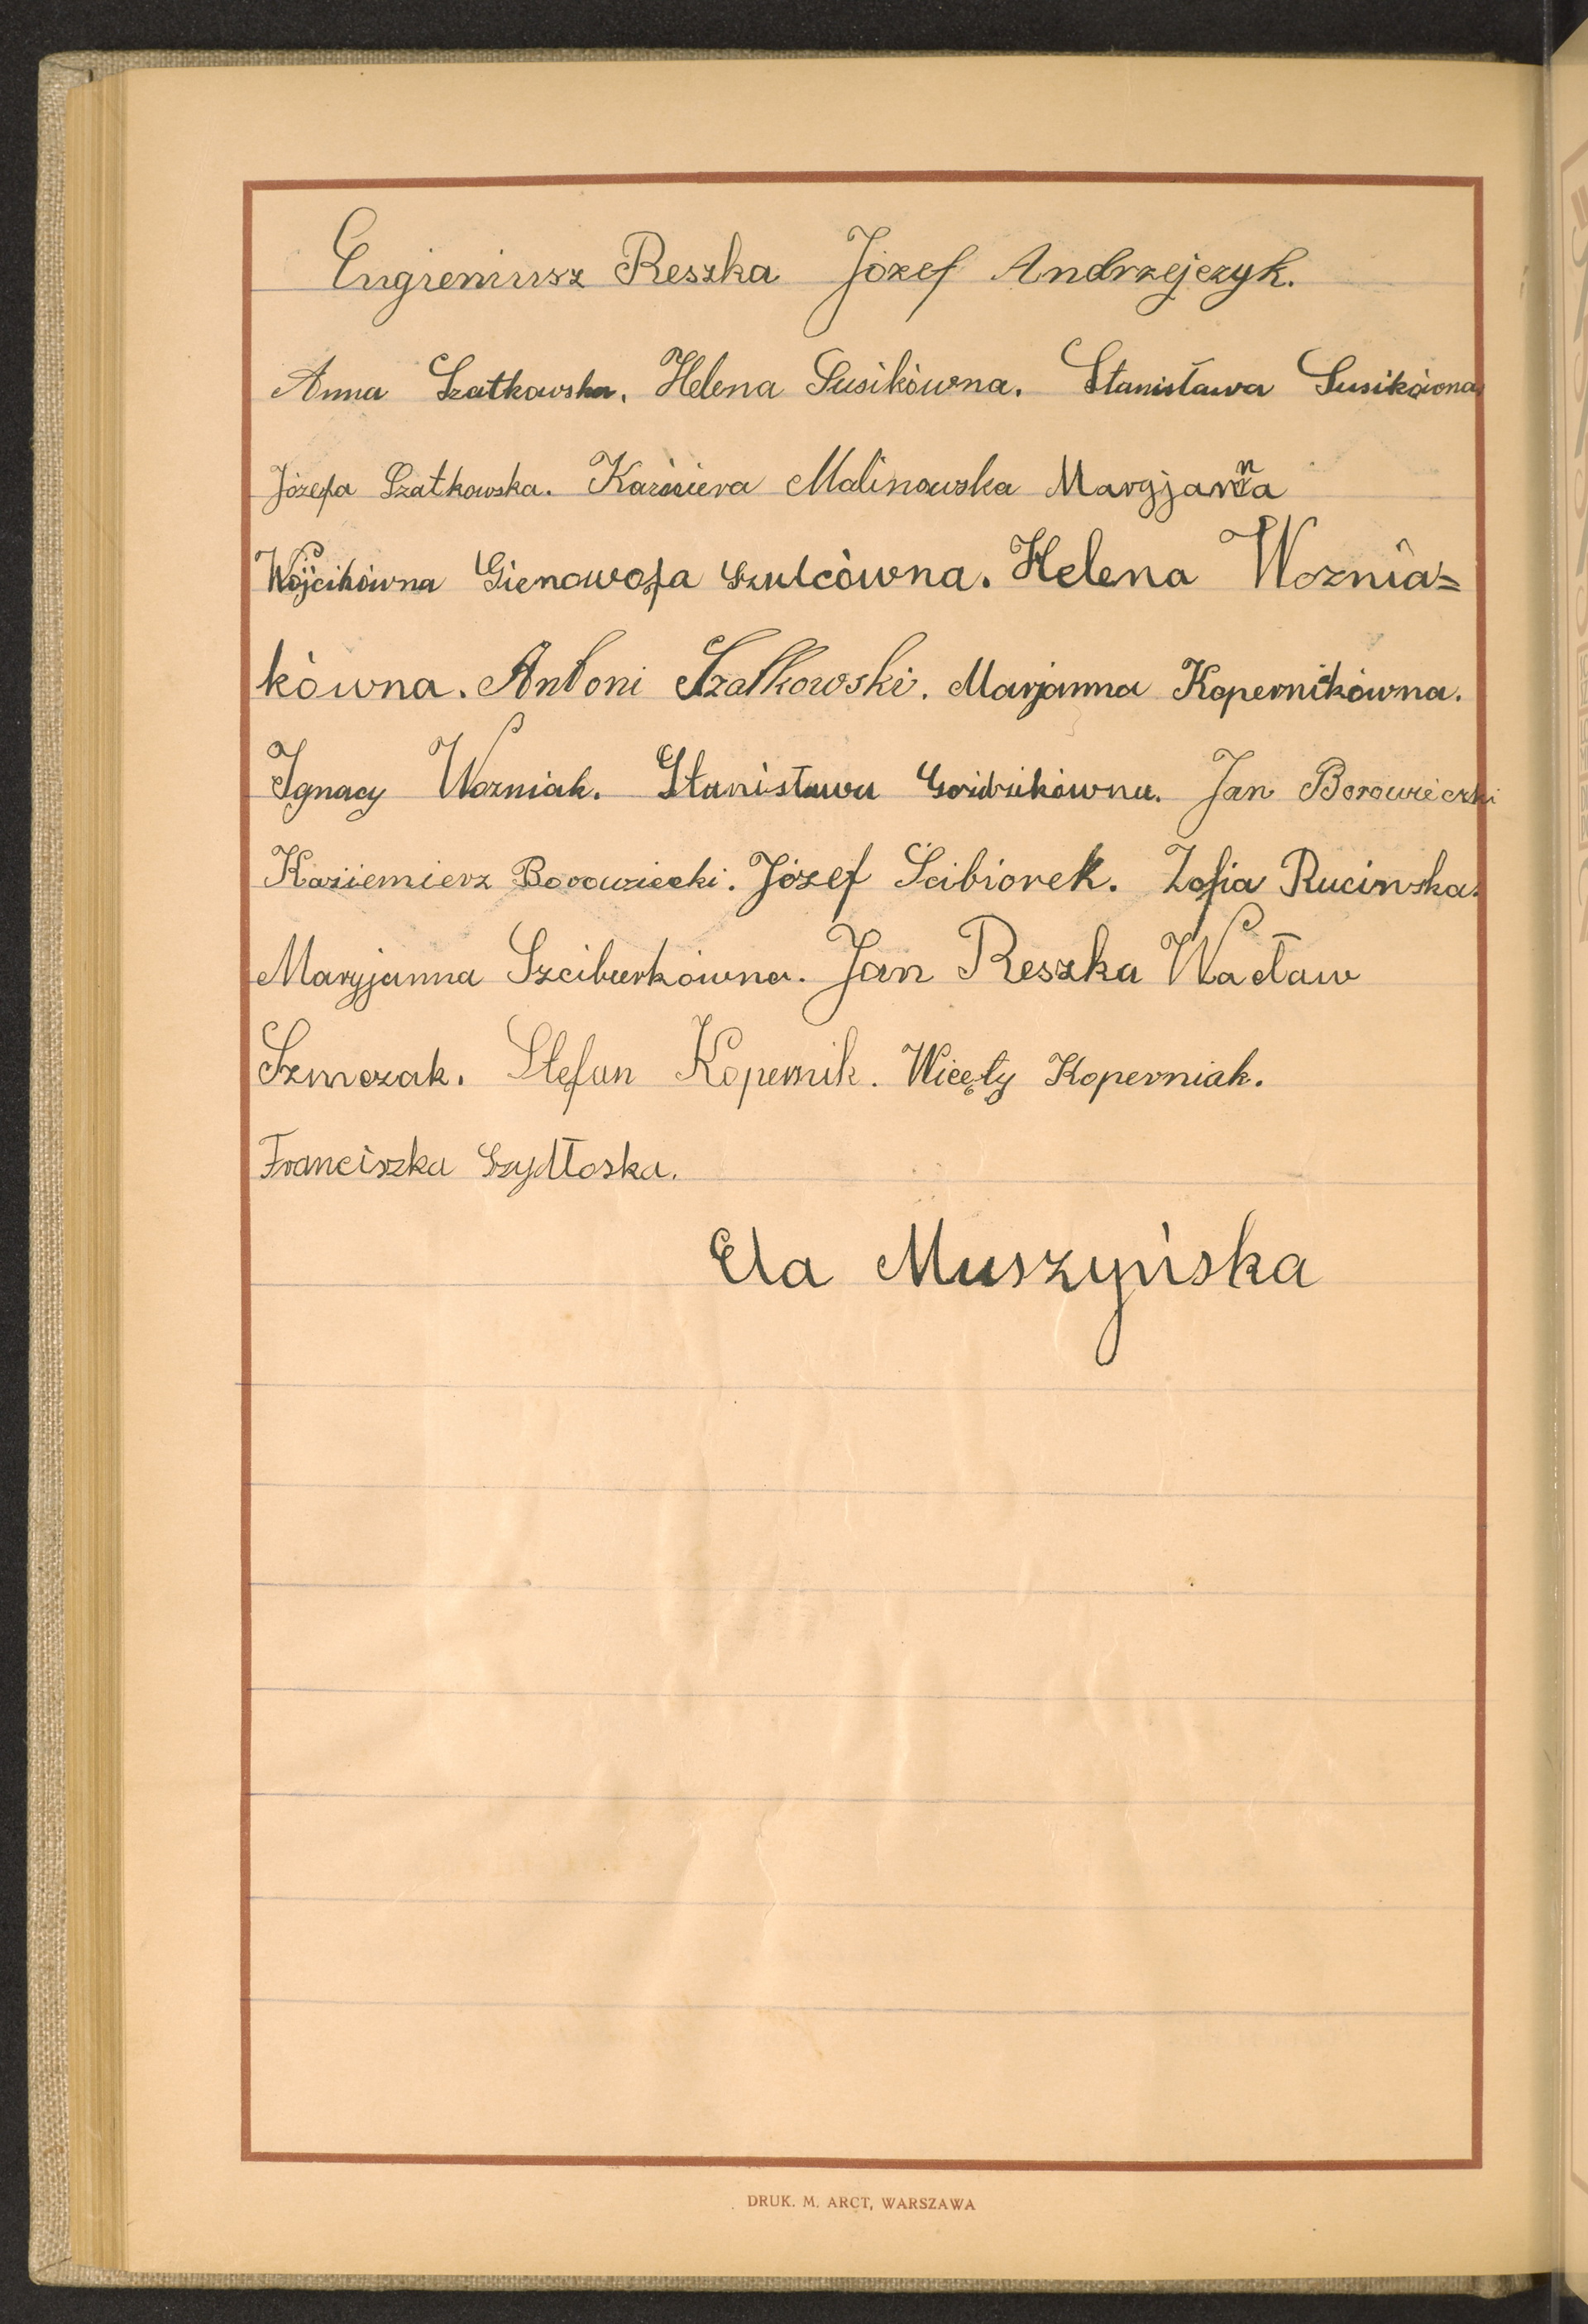 Eugieniusz Reszka Józef Andrzejczyk.
Anna Szatkowska. Helena Susikówna. Stanisława Susikówna
Józefa Szatkowska. Kaźmiera Malinowska Maryjanna
Wójcikówna Gienowefa Szulcówna. Helena Woznia=
kówna. Antoni Szatkowski. Marjanna Kopernikówna.
Ignacy Wozniak. Stanisława Jan Borowiecki
Kaziemierz Borowiecki. Józef Ścibiorek. Zofia Rucinska.
Maryjanna Szciburkówna. Jan Reszka Wacław
Szmczak. Stefan Kopernik. Wicęty Koperniak.
Franciszka Szydłoska.
Ela Muszyńska
DRUK. M. ARCT, WARSZAWA